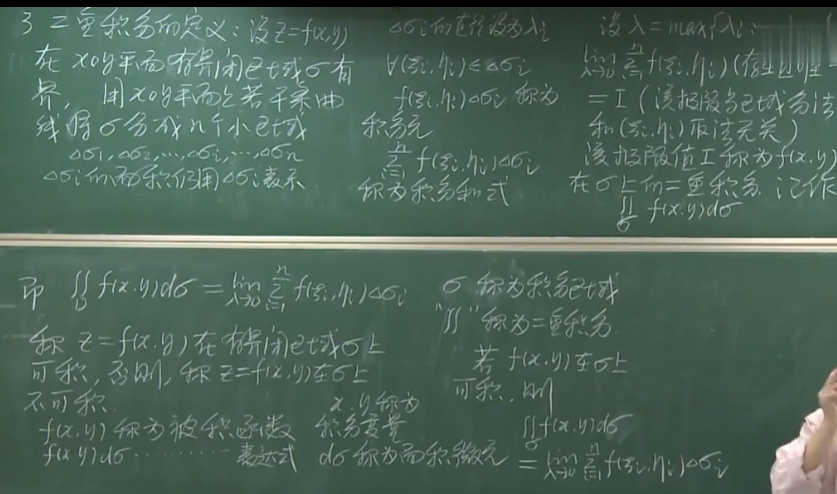 3 二重积分的定义：设z=f(x,y)
在xoy平面有界闭区域σ有
界，用xoy平面上若干条曲
线将σ分成n个小区域
Δσ₁,Δσ₂,…,Δσᵢ,…,Δσₙ
Δσᵢ的面积仍用Δσᵢ表示
Δσᵢ的直径设为λᵢ
∀(ξᵢ,ηᵢ)∈Δσᵢ
f(ξᵢ,ηᵢ)Δσᵢ 称为
积分元
∑ᵢ₌₁ⁿ f(ξᵢ,ηᵢ)Δσᵢ
称为积分和式
设λ=max{λᵢ}
lim λ→0 ∑ᵢ₌₁ⁿ f(ξᵢ,ηᵢ)(存在
=I（该极限与区域分法
和(ξᵢ,ηᵢ)取法无关）
该极限值I称为f(x,y)
在σ上的二重积分 记作
∬σ f(x,y)dσ
即 ∬σ f(x,y)dσ = lim λ→0 ∑ᵢ₌₁ⁿ f(ξᵢ,ηᵢ)Δσᵢ
称z=f(x,y)在有界闭区域σ上
可积，否则，称z=f(x,y)在σ上
不可积.
f(x,y)称为被积函数
f(x,y)dσ ……… 表达式
x,y称为
积分变量
dσ称为面积微元
σ称为积分区域
"∬"称为二重积分
若f(x,y)在σ上
可积，则
∬σ f(x,y)dσ
= lim λ→0 ∑ᵢ₌₁ⁿ f(ξᵢ,ηᵢ)Δσᵢ